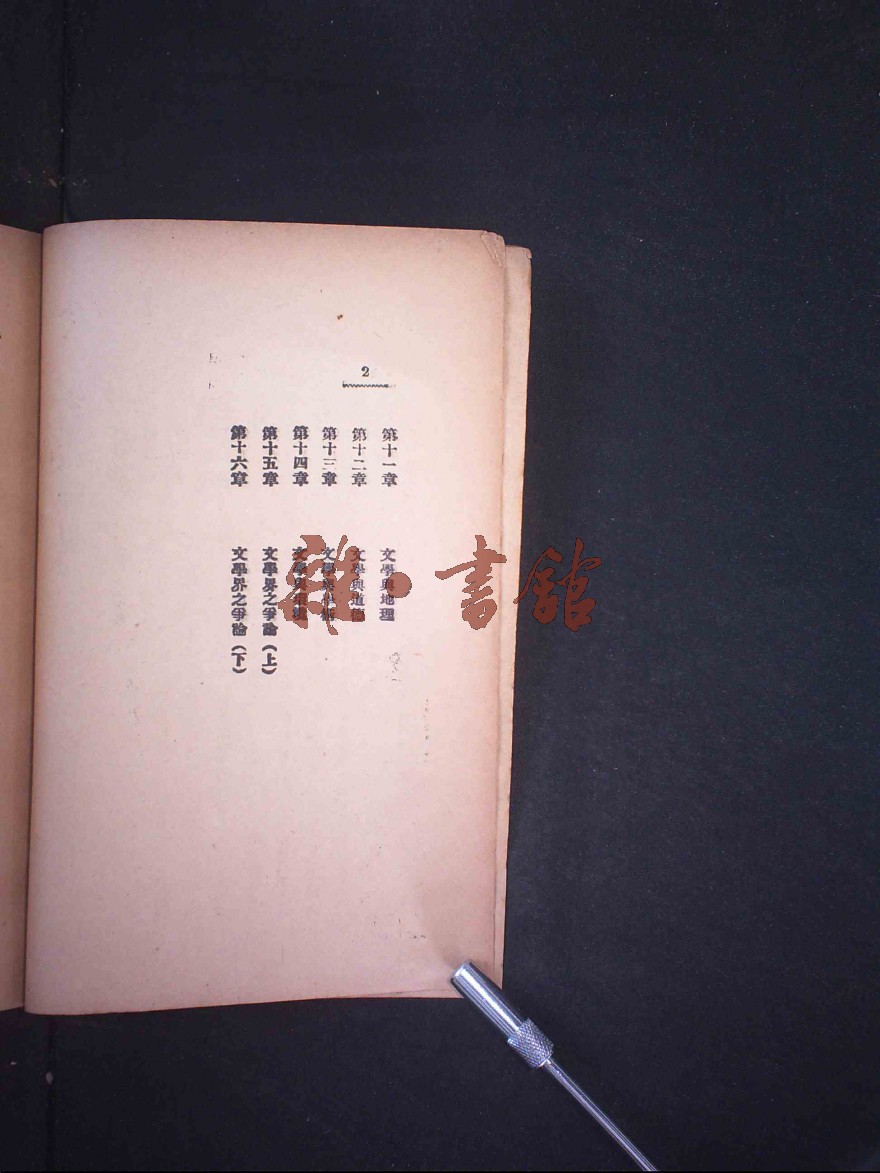 2
第十一章 文學與地理
第十二章 文學與道德
第十三章 文學與
第十四章 文學與
第十五章 文學界之爭論（上）
第十六章 文學界之爭論（下）
雜·書館